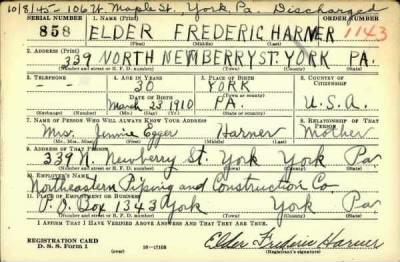 10/8/45- 106 W. Maple St., York, Pa. Discharged
SERIAL NUMBER 1. NAME (Print) ORDER NUMBER
858 ELDER FREDERIC HARNER 1143
(First) (Middle) (Last)
2. ADDRESS (Print)
339 NORTH NEWBERRY ST. YORK PA.
(Number and street or R. F. D. number) (Town) (County) (State)
3. TELEPHONE 4. AGE IN YEARS 5. PLACE OF BIRTH 6. COUNTRY OF CITIZENSHIP
-- 30 YORK
DATE OF BIRTH (Town or county)
March 23 1910 PA. U.S.A.
(Exchange) (Number) (Mo.) (Day) (Yr.) (State or country)
7. NAME OF PERSON WHO WILL ALWAYS KNOW YOUR ADDRESS 8. RELATIONSHIP OF THAT PERSON
Mrs. Jennie Egger Harner Mother
(Mr., Mrs., Miss) (First) (Middle) (Last)
9. ADDRESS OF THAT PERSON
339 N. Newberry St. York York Pa.
(Number and street or R. F. D. number) (Town) (County) (State)
10. EMPLOYER'S NAME
Northeastern Piping and Construction Co
11. PLACE OF EMPLOYMENT OR BUSINESS
P.O. Box 1343 York York Pa
(Number and street or R. F. D. number) (Town) (County) (State)
I AFFIRM THAT I HAVE VERIFIED ABOVE ANSWERS AND THAT THEY ARE TRUE.
REGISTRATION CARD
D. S. S. Form 1 (over) 16-17105 Elder Frederic Harner
(Registrant's signature)